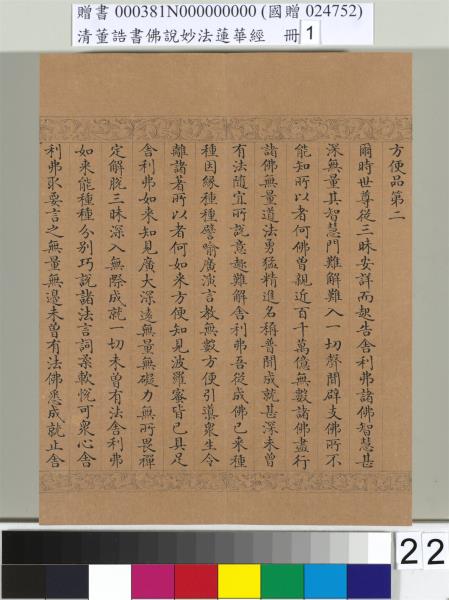 贈書 000381N000000000 (國贈 024752)
清董誥書佛說妙法蓮華經 冊 1
方便品第二
爾時世尊從三昧安詳而起告舍利弗諸佛智慧甚
深無量其智慧門難解難入一切聲聞辟支佛所不
能知所以者何佛曾親近百千萬億無數諸佛盡行
諸佛無量道法勇猛精進名稱普聞成就甚深未曾
有法隨宜所說意趣難解舍利弗吾從成佛已來種
種因緣種種譬喻廣演言教無數方便引導眾生令
離諸著所以者何如來方便知見波羅蜜皆已具足
舍利弗如來知見廣大深遠無量無礙力無所畏禪
定解脫三昧深入無際成就一切未曾有法舍利弗
如來能種種分別巧說諸法言詞柔軟悅可眾心舍
利弗取要言之無量無邊未曾有法佛悉成就止舍
22